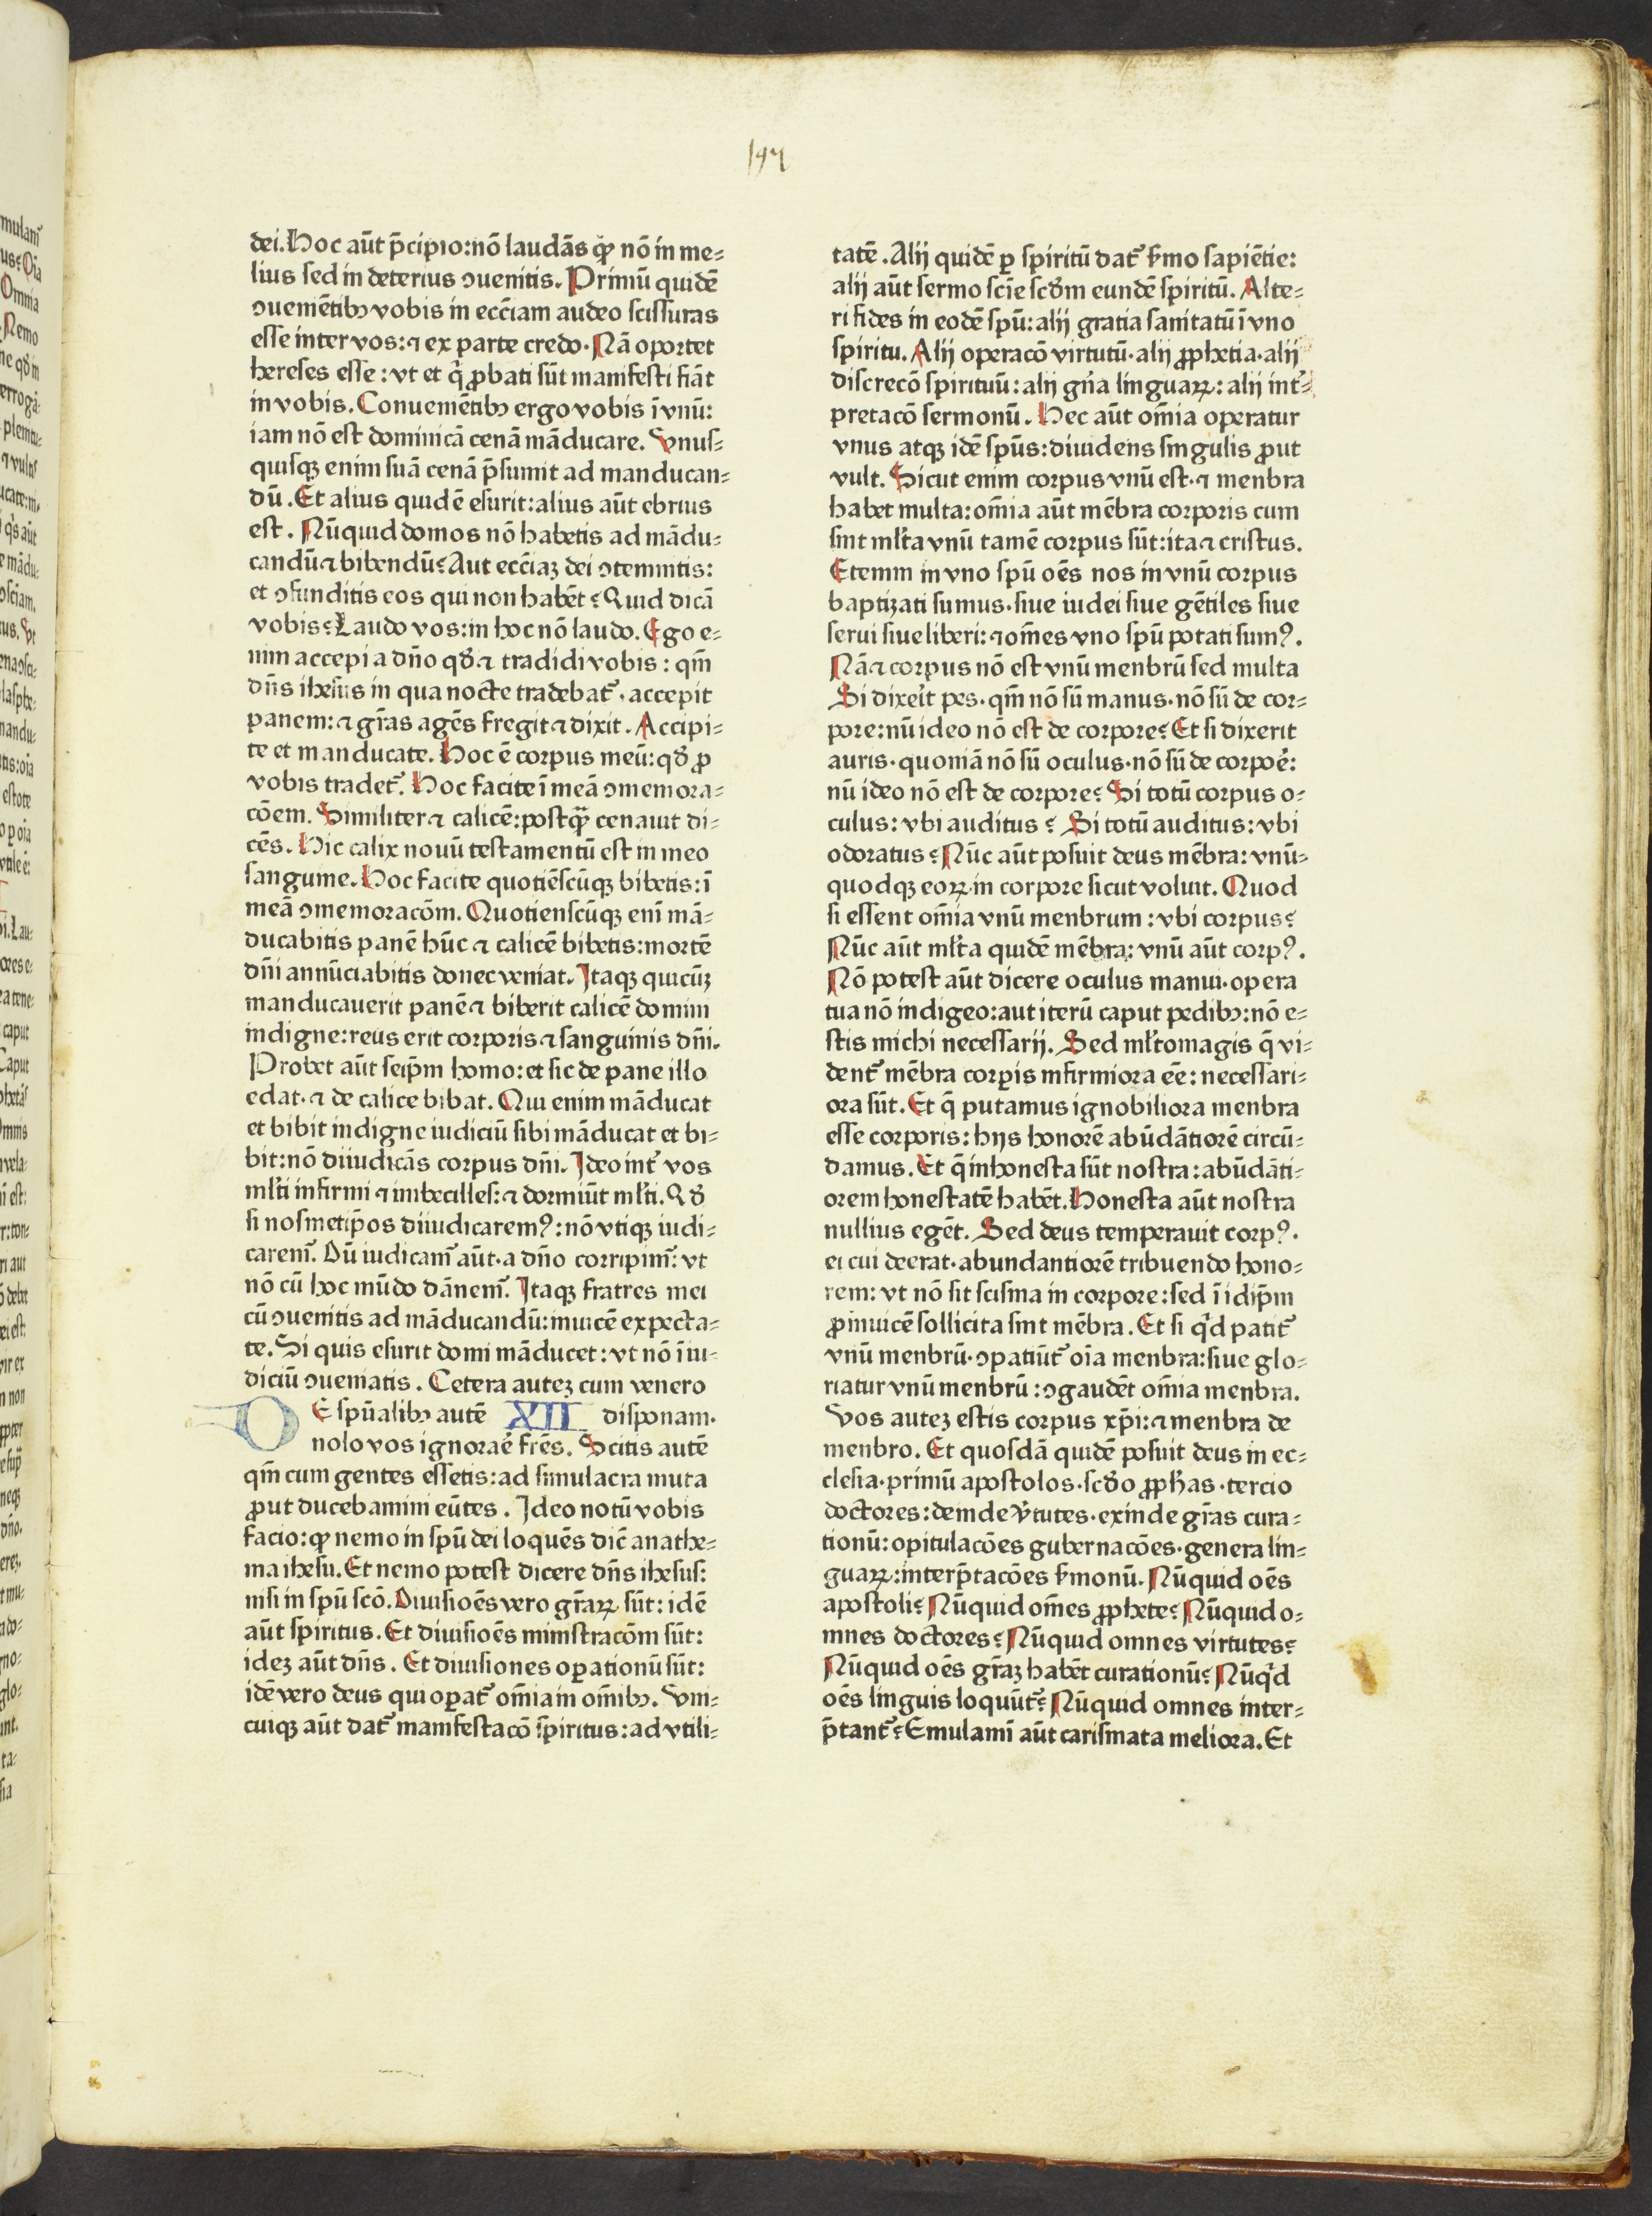 197
dei. Hoc aūt p̄cipio: nō laudās ꝙ nō in me⸗
lius sed in deterius ↄuenitis. Primū quidē
ↄueniētibꝫ vobis in ecc̄iam audeo scissuras
esse inter vos: ⁊ ex parte credo. Nā oportet
hereses esse: vt et q̇ ꝓbati sūt manifesti fiāt
in vobis. Conueniētibꝫ ergo vobis ī vnū:
iam nō est dominicā cenā māducare. Vnus⸗
quisqꝫ enim suā cenā p̄sumit ad manducan⸗
dū. Et alius quidē esurit: alius aūt ebrius
est. Nūquid domos nō habetis ad mādu⸗
candū ⁊ bibendū? Aut ecc̄iaꝫ dei ↄtemnitis:
et ↄfunditis eos qui non habēt? Quid dicā
vobis? Laudo vos: in hoc nō laudo. Ego e⸗
nim accepi a dn̄o qd̄ ⁊ tradidi vobis: qm̄
dn̄s ihesus in qua nocte tradebat᷑. accepit
panem: ⁊ gr̄as agēs fregit ⁊ dixit. Accipi⸗
te et manducate. Hoc ē corpus meū: qd̄ ꝓ
vobis tradet᷑. Hoc facite ī meā ↄmemora⸗
cōem. Similiter ⁊ calicē: postꝙ̄ cenauit di⸗
cēs. Hic calix nouū testamentū est in meo
sanguine. Hoc facite quotiēscūqꝫ bibetis: ī
meā ↄmemoracōm. Quotienscūqꝫ eni mā⸗
ducabitis panē hūc ⁊ calicē bibetis: mortē
dn̄i annūciabitis donec veniat. Itaqꝫ quicūꝫ
manducauerit panē ⁊ biberit calicē domini
indigne: reus erit corporis ⁊ sanguinis dn̄i.
Probet aūt seip̄m homo: et sic de pane illo
edat. ⁊ de calice bibat. Qui enim māducat
et bibit indigne iudiciū sibi māducat et bi⸗
bit: nō diiudicās corpus dn̄i. Ideo int᷑ vos
ml̄ti infirmi ⁊ imbecilles: ⁊ dormiūt ml̄ti. Qd̄
si nosmetip̄os diiudicaremꝰ: nō vtiqꝫ iudi⸗
carem᷑. Dū iudicam᷑ aūt. a dn̄o corripim᷑: vt
nō cū hoc mūdo dānem᷑. Itaqꝫ fratres mei
cū ↄuenitis ad māducandū: inuicē expecta⸗
te. Si quis esurit domi māducet: vt nō ī iu⸗
diciū ↄueniatis. Cetera auteꝫ cum venero
DE spūalibꝫ autē XII disponam.
nolo vos ignorae᷑ fr̄es. Scitis autē
qm̄ cum gentes essetis: ad simulacra muta
ꝓut ducebamini eūtes. Ideo notū vobis
facio: ꝙ nemo in spū dei loquēs dic̄ anathe⸗
ma ihesu. Et nemo potest dicere dn̄s ihesus:
nisi in spū scō. Diuisioēs vero gr̄aꝝ sūt: idē
aūt spiritus. Et diuisioēs ministracōm sūt:
ideꝫ aūt dn̄s. Et diuisiones oꝑationū sūt:
idē vero deus qui oꝑat᷑ om̄ia in om̄ibꝫ. Vni⸗
cuiqꝫ aūt dat᷑ manifestacō spiritus: ad vtili⸗
tatē. Alij quidē ꝑ spiritū dat᷑ ẜmo sapiētie:
alij aūt sermo scīe scd̄m eundē spiritū. Alte⸗
ri fides in eodē spū: alij gratia sanitatū ī vno
spiritu. Alij operacō virtutū. alij ꝓphetia. alij
discrecō spirituū: alij gn̄a linguaꝝ: alij int᷑⸗
pretacō sermonū. Hec aūt om̄ia operatur
vnus atqꝫ idē spūs: diuidens singulis ꝓut
vult. Sicut enim corpus vnū est. ⁊ menbra
habet multa: om̄ia aūt mēbra corporis cum
sint ml̄ta vnū tamē corpus sūt: ita ⁊ cristus.
Etenim in vno spū oēs nos in vnū corpus
baptizati sumus. siue iudei siue gētiles siue
serui siue liberi: ⁊ om̄es vno spū potati sumꝰ.
Nā ⁊ corpus nō est vnū menbrū sed multa
Si dixeit᷑ pes. qm̄ nō sū manus. nō sū de cor⸗
pore: nū ideo nō est de corpore? Et si dixerit
auris. quoniā nō sū oculus. nō sū de corpoe᷑:
nū ideo nō est de corpore? Si totū corpus o⸗
culus: vbi auditus? Si totū auditus: vbi
odoratus? Nūc aūt posuit deus mēbra: vnū⸗
quodqꝫ eoꝝ in corpore sicut voluit. Quod
si essent om̄ia vnū menbrum: vbi corpus?
Nūc aūt ml̄ta quidē mēbra: vnū aūt corpꝰ.
Nō potest aūt dicere oculus manui. opera
tua nō indigeo: aut iterū caput pedibꝫ: nō e⸗
stis michi necessarij. Sed ml̄tomagis q̄ vi⸗
dent᷑ mēbra corꝑis infirmiora ēe: necessari⸗
ora sūt. Et q̄ putamus ignobiliora menbra
esse corporis: hijs honorē abūdātiorē circū⸗
damus. Et q̄ inhonesta sūt nostra: abūdāti⸗
orem honestatē habēt. Honesta aūt nostra
nullius egēt. Sed deus temperauit corpꝰ.
ei cui deerat. abundantiorē tribuendo hono⸗
rem: vt nō sit scisma in corpore: sed ī idip̄m
ꝓinuicē sollicita sint mēbra. Et si qͥd patit᷑
vnū menbrū. ↄpatiūt᷑ oīa menbra: siue glo⸗
riatur vnū menbrū: ↄgaudēt om̄ia menbra.
Vos auteꝫ estis corpus xp̄i: ⁊ menbra de
menbro. Et quosdā quidē posuit deus in ec⸗
clesia. primū apostolos. scd̄o ꝓphas. tercio
doctores: deinde v᷑tutes. exinde gr̄as cura⸗
tionū: opitulacōes gubernacōes. genera lin⸗
guaꝝ: interp̄tacōes ẜmonū. Nūquid oēs
apostoli? Nūquid om̄es ꝓphete? Nūquid o⸗
mnes doctores? Nūquid omnes virtutes?
Nūquid oēs gr̄aꝫ habēt curationū? Nūqͥd
oēs linguis loquūt᷑? Nūquid omnes inter⸗
p̄tant᷑? Emulami aūt carismata meliora. Et